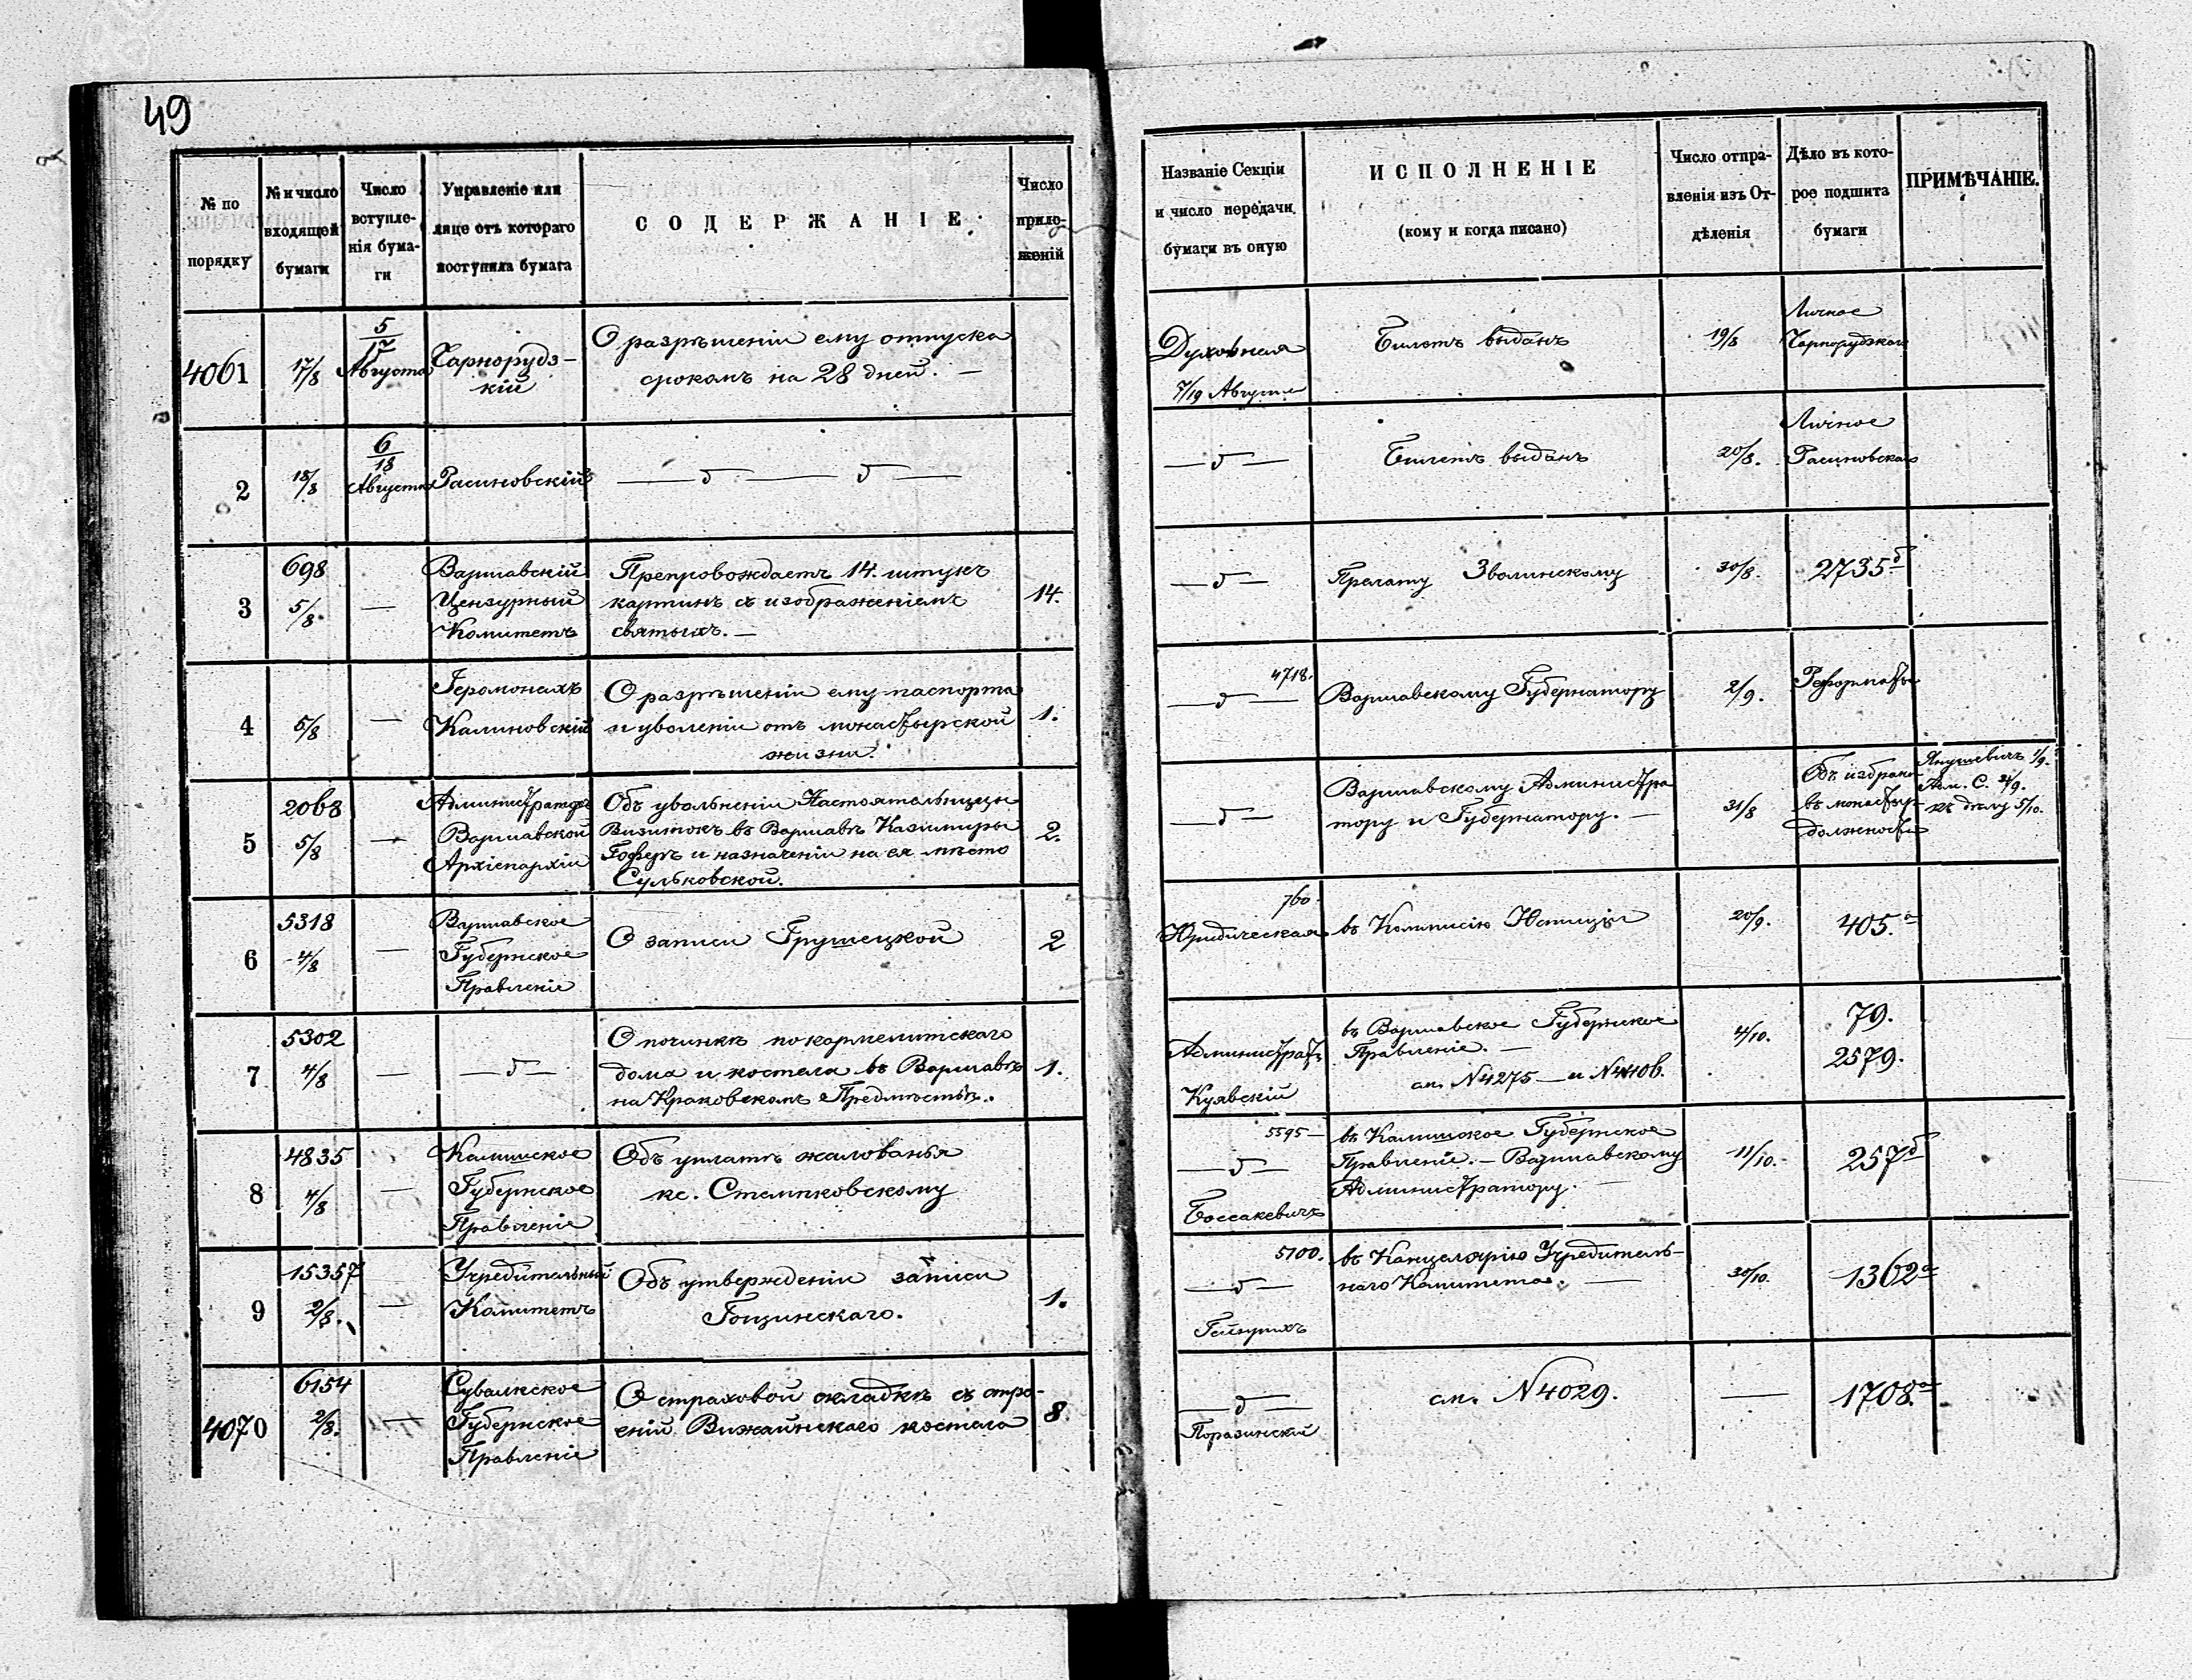 49
№ по порядку
№ и число входящей бумаги
Число вступле-
нія бума-
ги
Управленіе или
лице отъ котораго
поступила бумага
СОДЕРЖАНІЕ
Число
прило-
женій
Названіе Секціи
и число передачи
бумаги въ оную
ИСПОЛНЕНІЕ
(кому и когда писано)
Число отпра-
вленія изъ От-
дѣленія
Дѣло въ кото-
рое подшита
бумаги
ПРИМѢЧАНІЕ.
4061
17/8
5/17
Августа
Чарнорудз-
кій
О разрѣшеніи ему отпуска
срокомъ на 28 дней. —
Духовная
7/19 Августа
Билетъ выданъ
19/8
Личное
Чарнорудзкаго
2
18/8
6/18
Августа
Расиновскій
— д — — д —
— д —
Билетъ выданъ
20/8.
Личное
Расиновскаго
3
698
5/8
—
Варшавскій
Цензурный
Комитетъ
Препровождаетъ 14. штукъ
картинъ съ изображеніемъ
святыхъ. —
14.
— д —
Прелату Зволинскому
30/8.
2735б
4
5/8
—
Іеромонахъ
Калиновскій
О разрѣшеніи ему паспорта
и уволеніи отъ монастырской
жизни.
1.
4718.
— д —
Варшавскому Губернатору
2/9.
Реформаты
5
2068
5/8
—
Администраторъ
Варшавской
Архіепархіи
Объ увольненіи Настоятельницы
Визитокъ въ Варшавѣ Казимиры
Гоферъ и назначеніи на ея мѣсто
Сулковской.
2.
— д —
Варшавскому Администра
тору и Губернатору. —
31/8
Объ избран.
въ монастыр.
должности
Янушевичъ 1/9.
къ дѣлу 5/10.
6
5318
4/8
—
Варшавское
Губернское
Правленіе
О записи Грушецкой
2
760.
Юридическая
въ Коммисію Юстиціи
20/9.
405.а
7
5302
4/8
—
— д —
О починкѣ покармелитскаго
дома и костела въ Варшавѣ
на Краковскомъ Предмѣстьѣ.
1.
Администрат.
Куявскій
въ Варшавское Губернское
Правленіе. —
см. N 4275 — и N 4410б.
4/10.
79.
2579.
8
4835
4/8
—
Калишское
Губернское
Правленіе
Объ уплатѣ жалованья
кс. Стемпковскому
5595 —
— д —
Боссакевичъ
въ Калишское Губернское
Правленіе. — Варшавскому
Администратору. —
11/10.
257б
9
15357
2/8.
—
Учредительный
Комитетъ
Объ утвержденіи записи
Гощинскаго.
1.
5100.
— д —
Гейнрихъ
въ Канцелярію Учредитель-
наго Комитета. —
30/10.
1362а
4070
6154
2/8.
—
Сувалкское
Губернское
Правленіе
О страховой складкѣ съ стро-
еній Вижайнскаго костела
8.
— д —
Поразинскій
см. N 4029.
—
1708.а